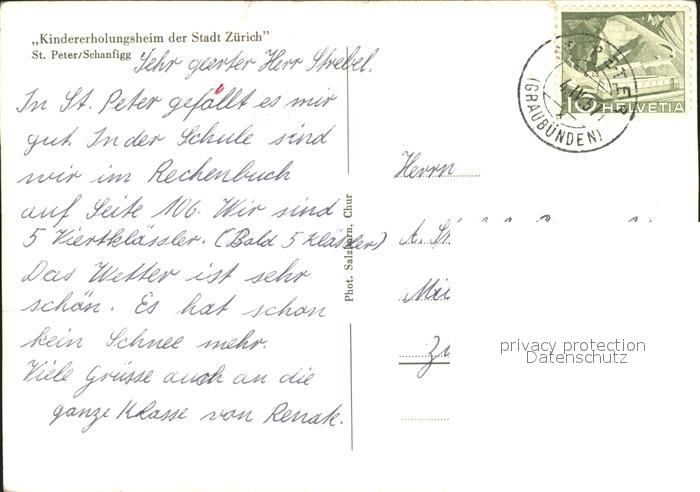 „Kindererholungsheim der Stadt Zürich”
St. Peter/Schanfigg
Sehr geerter Herr Strebel.
In St. Peter gefällt es mir
gut. In der Schule sind
wir im Rechenbuch
auf Seite 106. Wir sind
5 Viertklässler. (Bald 5 klässler)
Das Wetter ist sehr
schön. Es hat schon
kein Schnee mehr.
Viele Grüsse auch an die
ganze Klasse von Renate.
Phot. Salzborn, Chur
10 HELVETIA
(GRAUBÜNDEN)
Herrn
privacy protection
Datenschutz